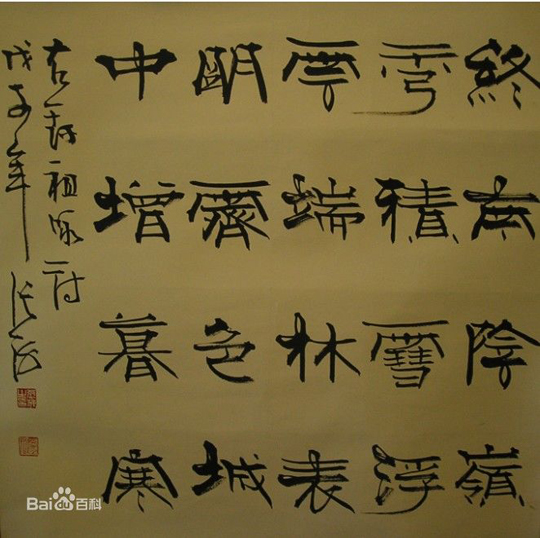 終南陰嶺
秀積雪浮
雲端林表
明霽色城
中增暮寒
祖詠詩
戊子年
Baidu百科